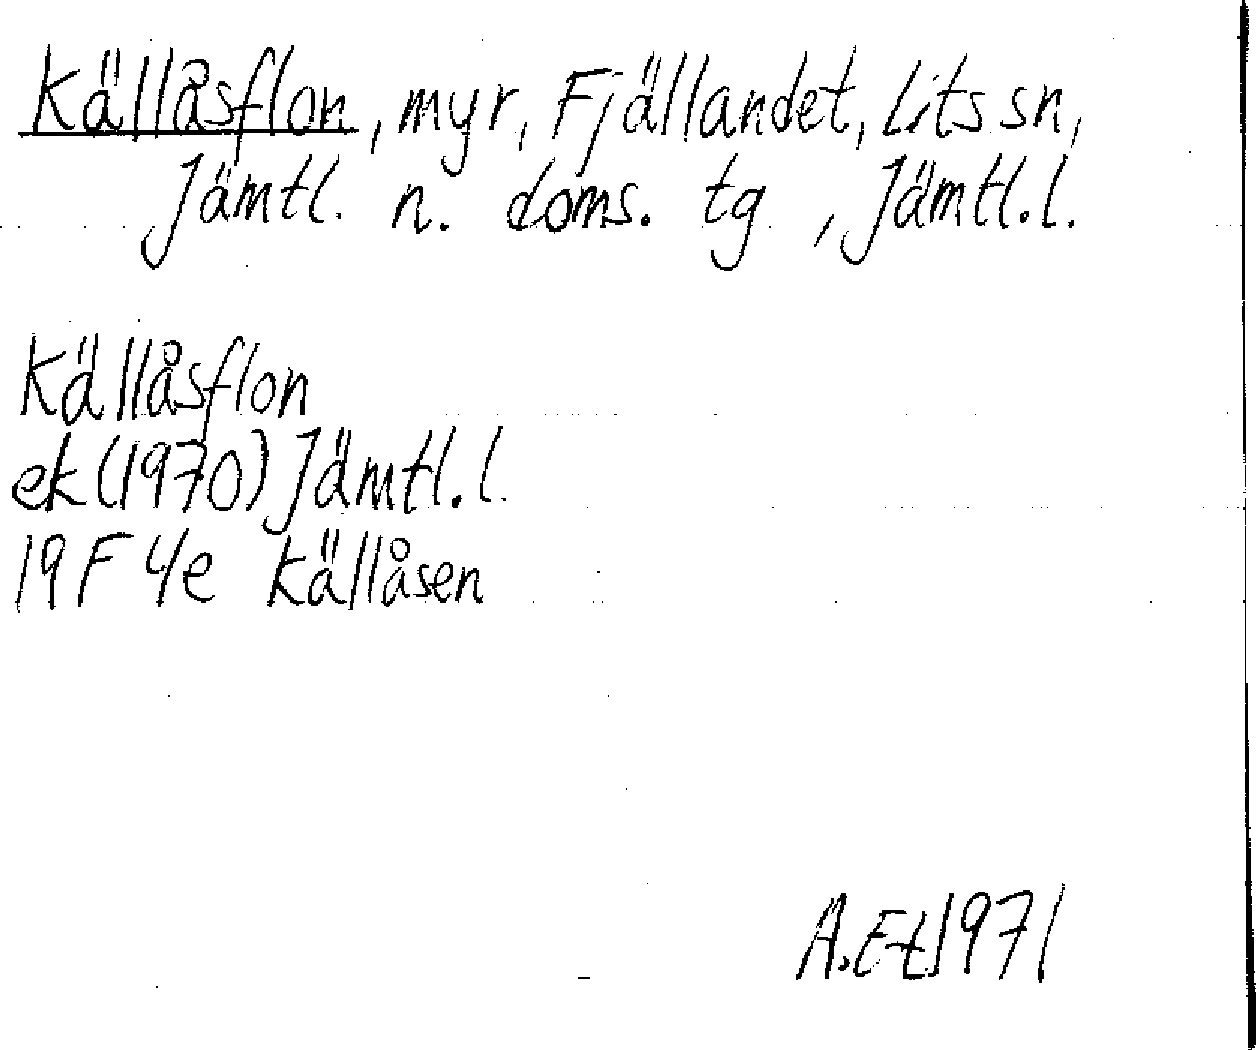 Källåsflon, myr, Fjällandet, Lits sn,
Jämtl. n. doms. tg, Jämtl.l.
Källåsflon
ek (1970) Jämtl.l.
19F 4e Källåsen
A.Et 1971